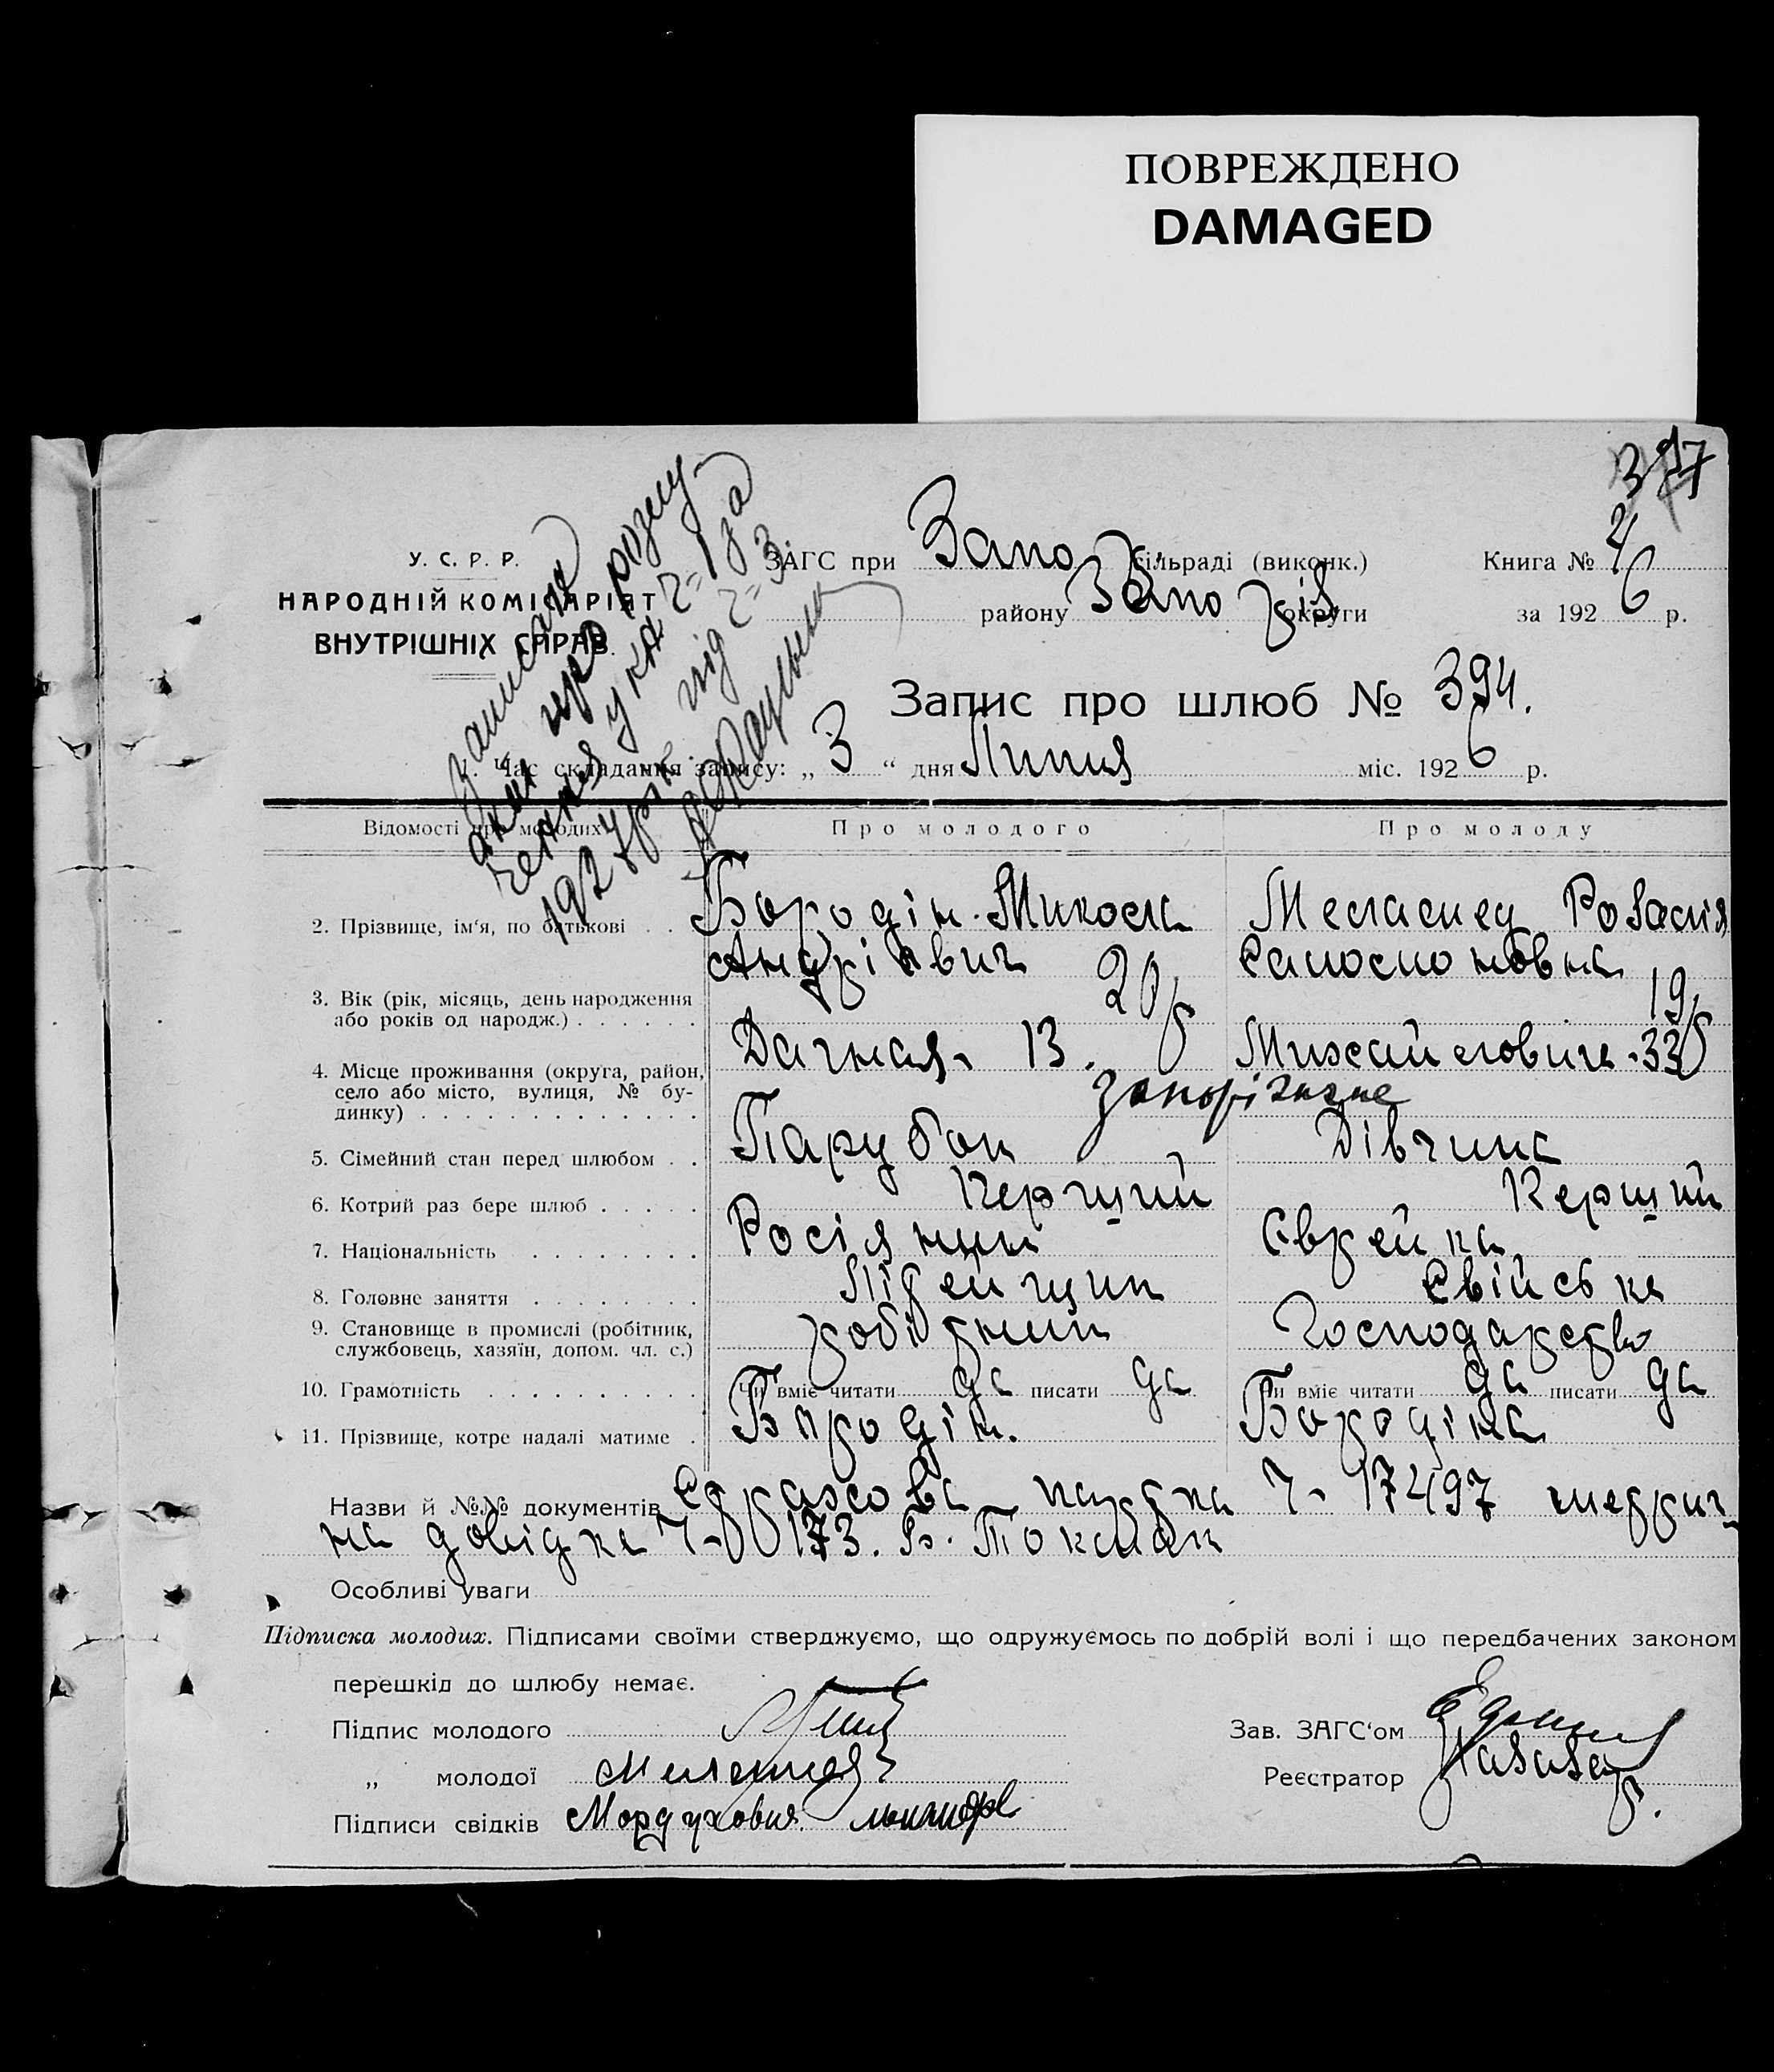 ПОВРЕЖДЕНО
DAMAGED
У. С. Р. Р.
НАРОДНІЙ КОМІСАРІЯТ
ВНУТРІШНІХ СПРАВ.
ЗАГС при Запо сільраді (виконк.)
району Запо округи
Книга № 4
за 1926 р.
Запис про шлюб № 394.
1. Час складання запису: „ 3 “ дня Липня міс. 1926 р.
Відомості про молодих
Про молодого
Про молоду
2. Прізвище, ім‘я, по батькові . .
Бородін Микола
Андрієвич
3. Вік (рік, місяць, день народження
або років од народж.) . . . . . .
20 р
19 р
4. Місце проживання (округа, район,
село або місто, вулиця, № бу-
динку) . . . . . . . . . . . . .
Дачная 13.
33
Запоріжжє
5. Сімейний стан перед шлюбом . .
Парубок
Дівчина
6. Котрий раз бере шлюб . . . . .
Перший
Перший
7. Національність . . . . . . . .
Росіянин
Єврейка
8. Головне заняття . . . . . . . .
Лівейщик
Свійське
9. Становище в промислі (робітник,
службовець, хазяїн, допом. чл. с.)
робітник
Господарство
10. Грамотність . . . . . . . . . .
Чи вміє читати да писати да
Чи вміє читати да писати да
11. Прізвище, котре надалі матиме .
Бородін.
Бородіна
Назви й №№ документів Страхова картка Ч- 17497 метрич-
на довідка Ч- 173. В. Токмак
Особливі уваги
Підписка молодих. Підписами своїми стверджуємо, що одружуємось по добрій волі і що передбачених законом
перешкід до шлюбу немає.
Підпис молодого
„ молодої
Підписи свідків
Зав. ЗАГС‘ом
Реєстратор